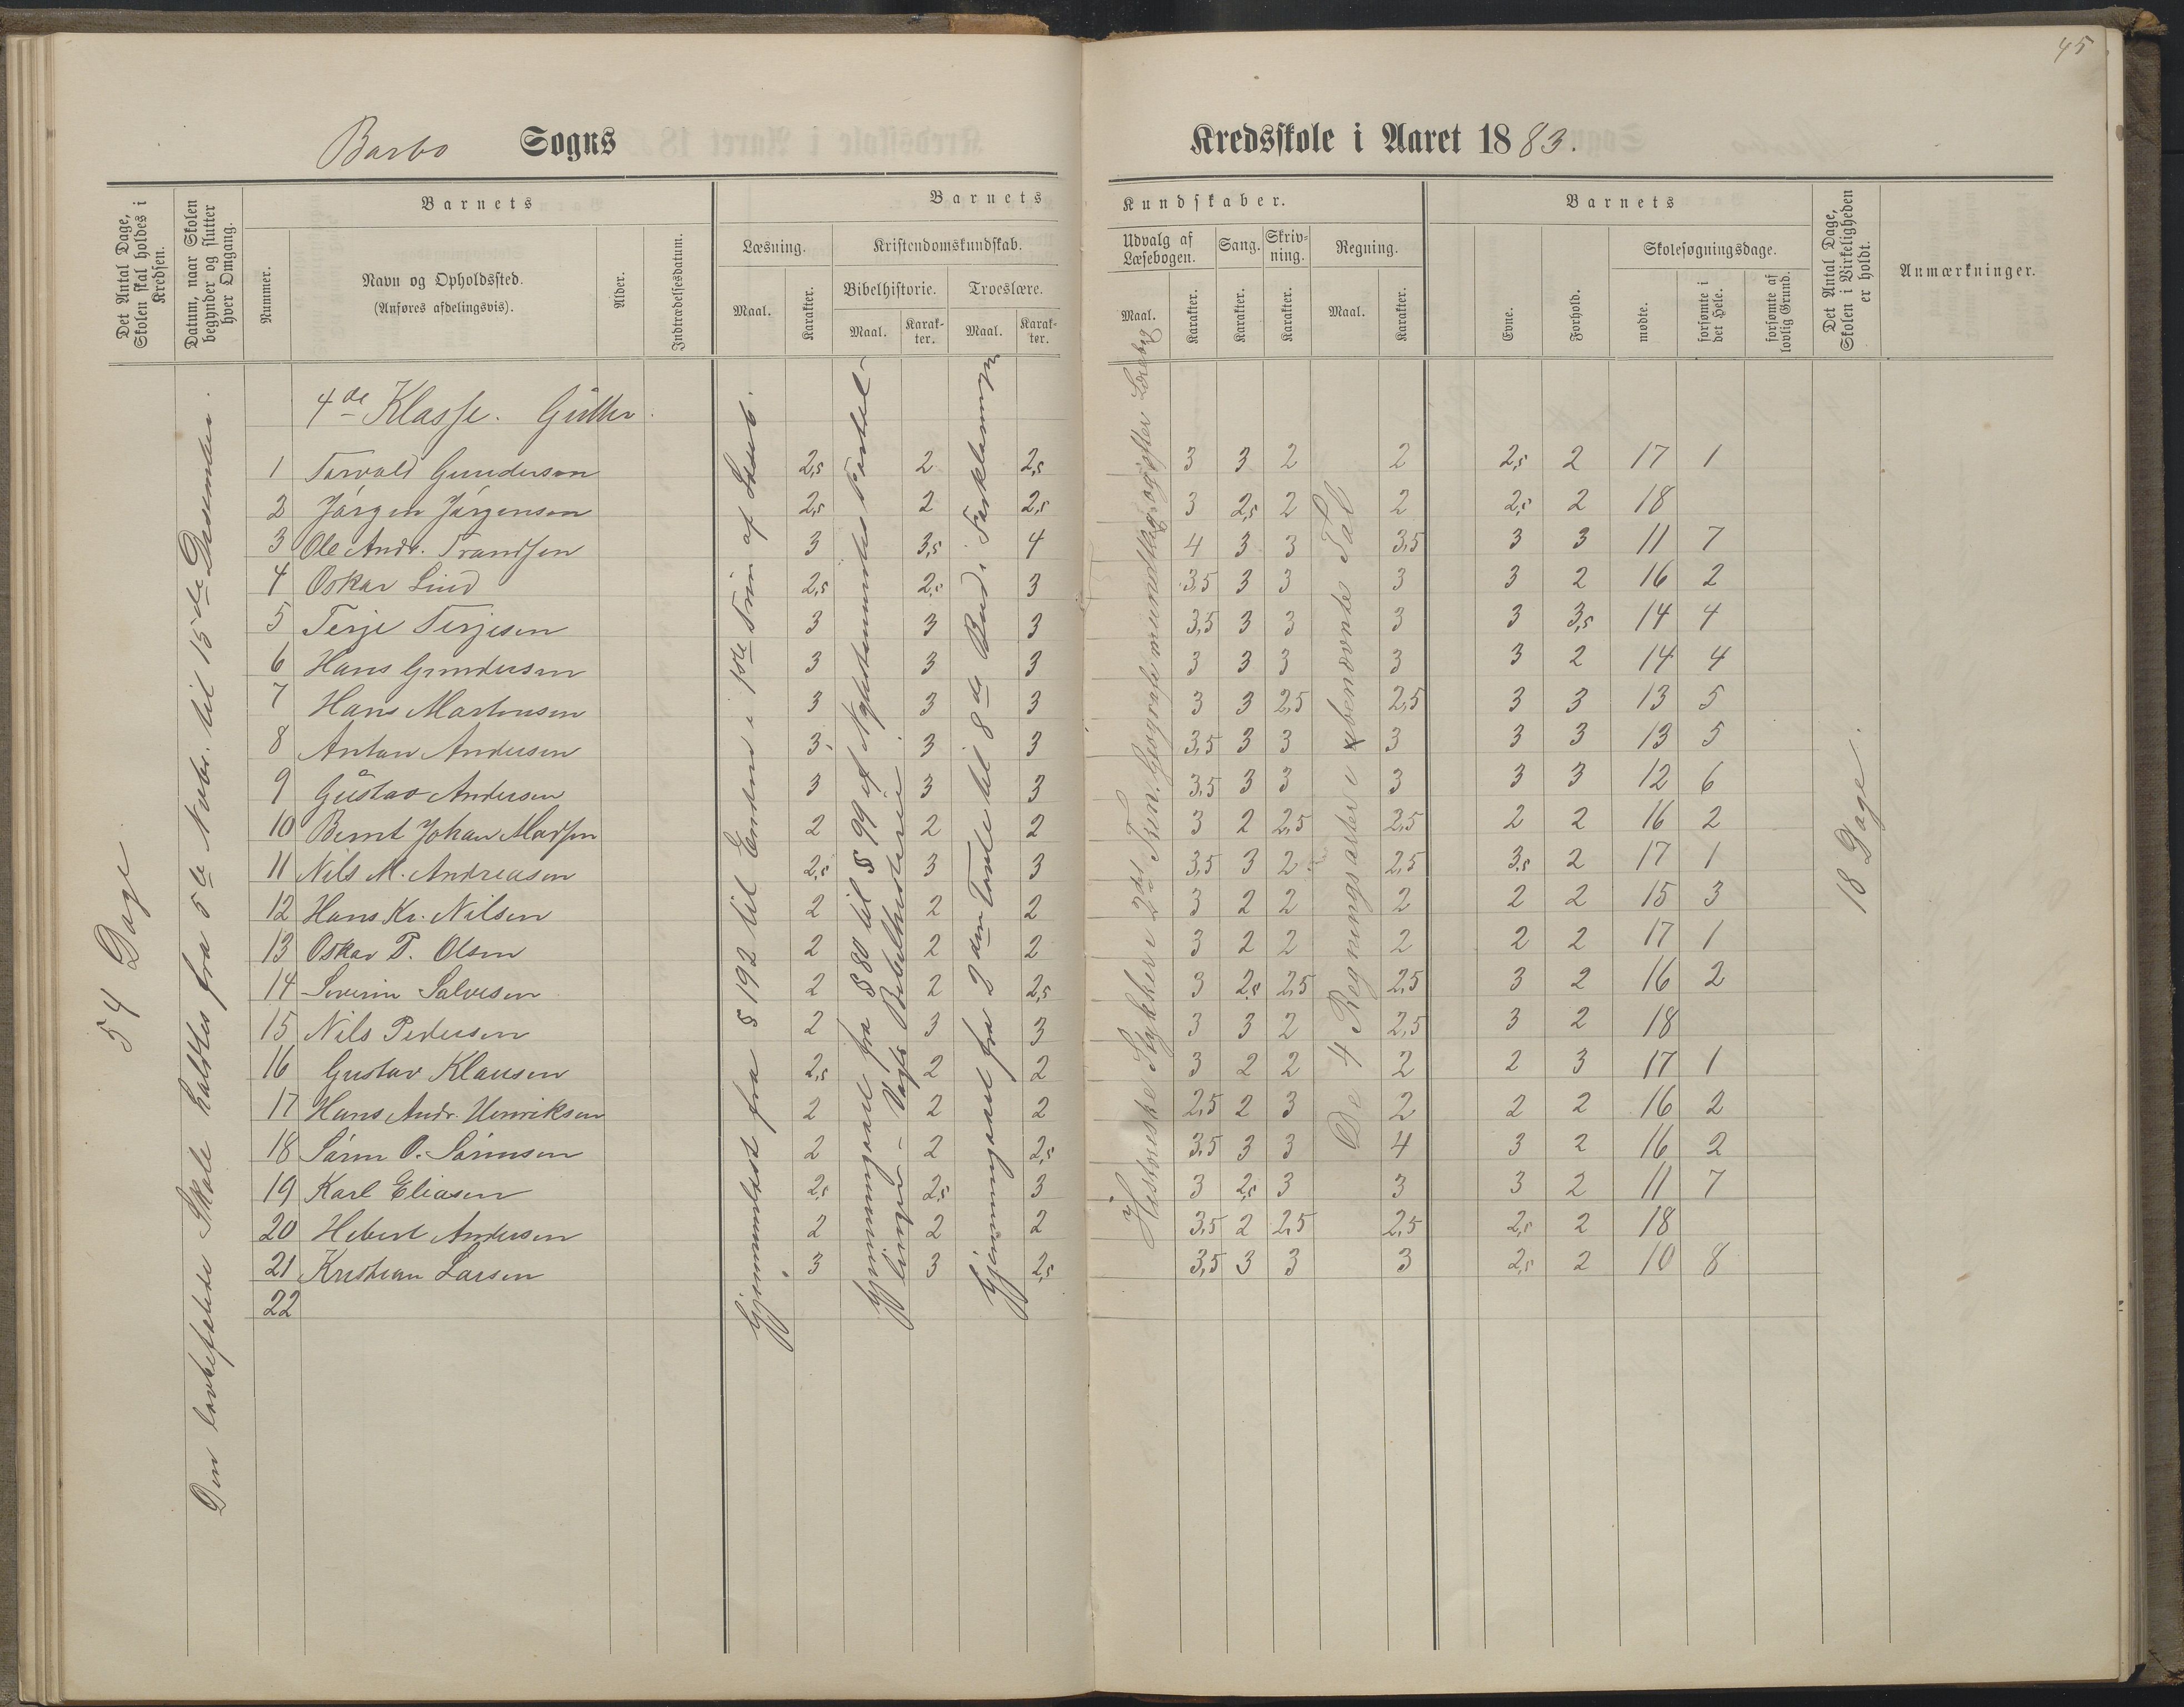 45
Barbo Sogns Kredsskole i Aaret 1883.
Det Antal Dage, Skolen skal holdes i Kredsen.
Datum, naar Skolen begynder og slutter hver Omgang.
Barnets
Nummer.
Navn og Opholdssted.
(Anføres afdelingsvis).
Alder.
Indtrædelsesdatum.
Barnets Kundskaber.
Læsning.
Maal.
Karakter.
Kristendomskundskab.
Bibelhistorie.
Maal.
Karak-ter.
Troeslære.
Maal.
Karak-ter.
Udvalg af Læsebogen.
Maal.
Karakter.
Sang.
Karakter.
Skriv-ning.
Karakter.
Regning.
Maal.
Karakter.
Barnets
Evne.
Forhold.
Skolesøgningsdage.
mødte.
forsømte i det Hele.
forsømte af lovlig Grund.
Det Antal Dage, Skolen i Virkeligheden er holdt.
Anmærkninger.
54 Dage
Den lovbefalede Skole holdtes fra 5te Novbr. til 15de Desember.
4de Klasse. Gutter.
1 Torvald Gundersen 2,5 2 2,5 3 3 2 2 2,5 2 17 1
2 Jörgen Jörgensen 2,5 2 2,5 3 2,5 2 2 2,5 2 18
3 Ole Andr. Trandsen 3 3,5 4 4 3 3 3,5 3 3 11 7
4 Oskar Lind 2,5 2,5 3 3,5 3 3 3 3 2 16 2
5 Terje Terjesen 3 3 3 3,5 3 3 3 3 3,5 14 4
6 Hans Gundersen 3 3 3 3 3 3 3 3 2 14 4
7 Hans Martensen 3 3 3 3 3 2,5 2,5 3 3 13 5
8 Anton Andersen 3 3 3 3,5 3 3 3 3 3 13 5
9 Gustav Andersen 3 3 3 3,5 3 3 3 3 3 12 6
10 Bernt Johan Madsen 2 2 2 3 2 2,5 2,5 2 2 16 2
11 Nils M. Andreasen 2,5 3 3 3,5 3 2 2,5 3,5 2 17 1
12 Hans Kr. Nilsen 2 2 2 3 2 2 2 2 2 15 3
13 Oskar P. Olsen 2 2 2 3 2 2 2 2 2 17 1
14 Severin Salvesen 2 2 2,5 3 2,5 2,5 2,5 3 2 16 2
15 Nils Pedersen 2 3 3 3 3 2 2,5 3 2 18
16 Gustav Klausen 2,5 2 2 3 2 2 2 2 3 17 1
17 Hans Andr. Henriksen 2 2 2 2,5 2 3 2 2 2 16 2
18 Sören O. Sörensen 2 2 2,5 3,5 3 3 4 3 2 16 2
19 Karl Eliasen 2,5 2,5 3 3 2,5 3 3 3 2 11 7
20 Hebert Andersen 2 2 2 3,5 2 2,5 2,5 2,5 2 18
21 Kristian Larsen 3 3 2,5 3,5 3 3 3 2,5 2 10 8
22
Gjennemlæst fra § 192 til Enden i 1ste Trin af Læseb.
Gjennemgaaet fra § 80 til § 99 af Nytestamentes Fortæl-
linger - Vogts Bibelhistorie.
Gjennemgaaet fra 2den Parte til 8de Bud i Forklaringen
Historiske Stykker i 2det Trin. Geografi mundtlig og efter Læsebog
De 4 Regningsarter i ubenævnte Tal
18 Dage.